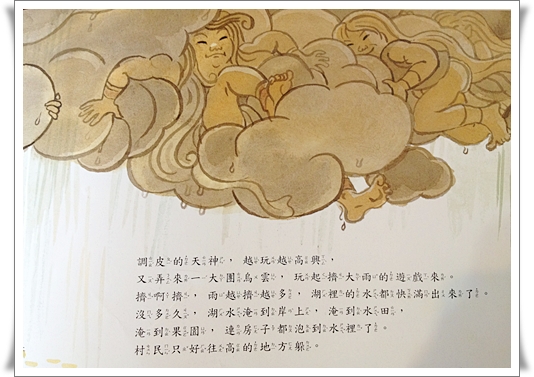 調皮的天神，越玩越高興，
又弄來一大團烏雲，玩起擠大雨的遊戲來。
擠啊擠，雨越擠越多，湖裡的水都快滿出來了。
沒多久，湖水淹到岸上，淹到水田，
淹到果園，連房子都泡到水裡了。
村民只好往高的地方躲。